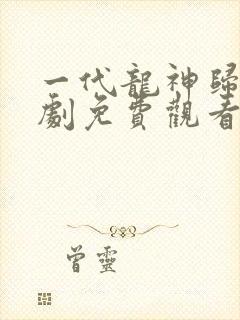 一代龍神歸
劇免費觀看
曾靈